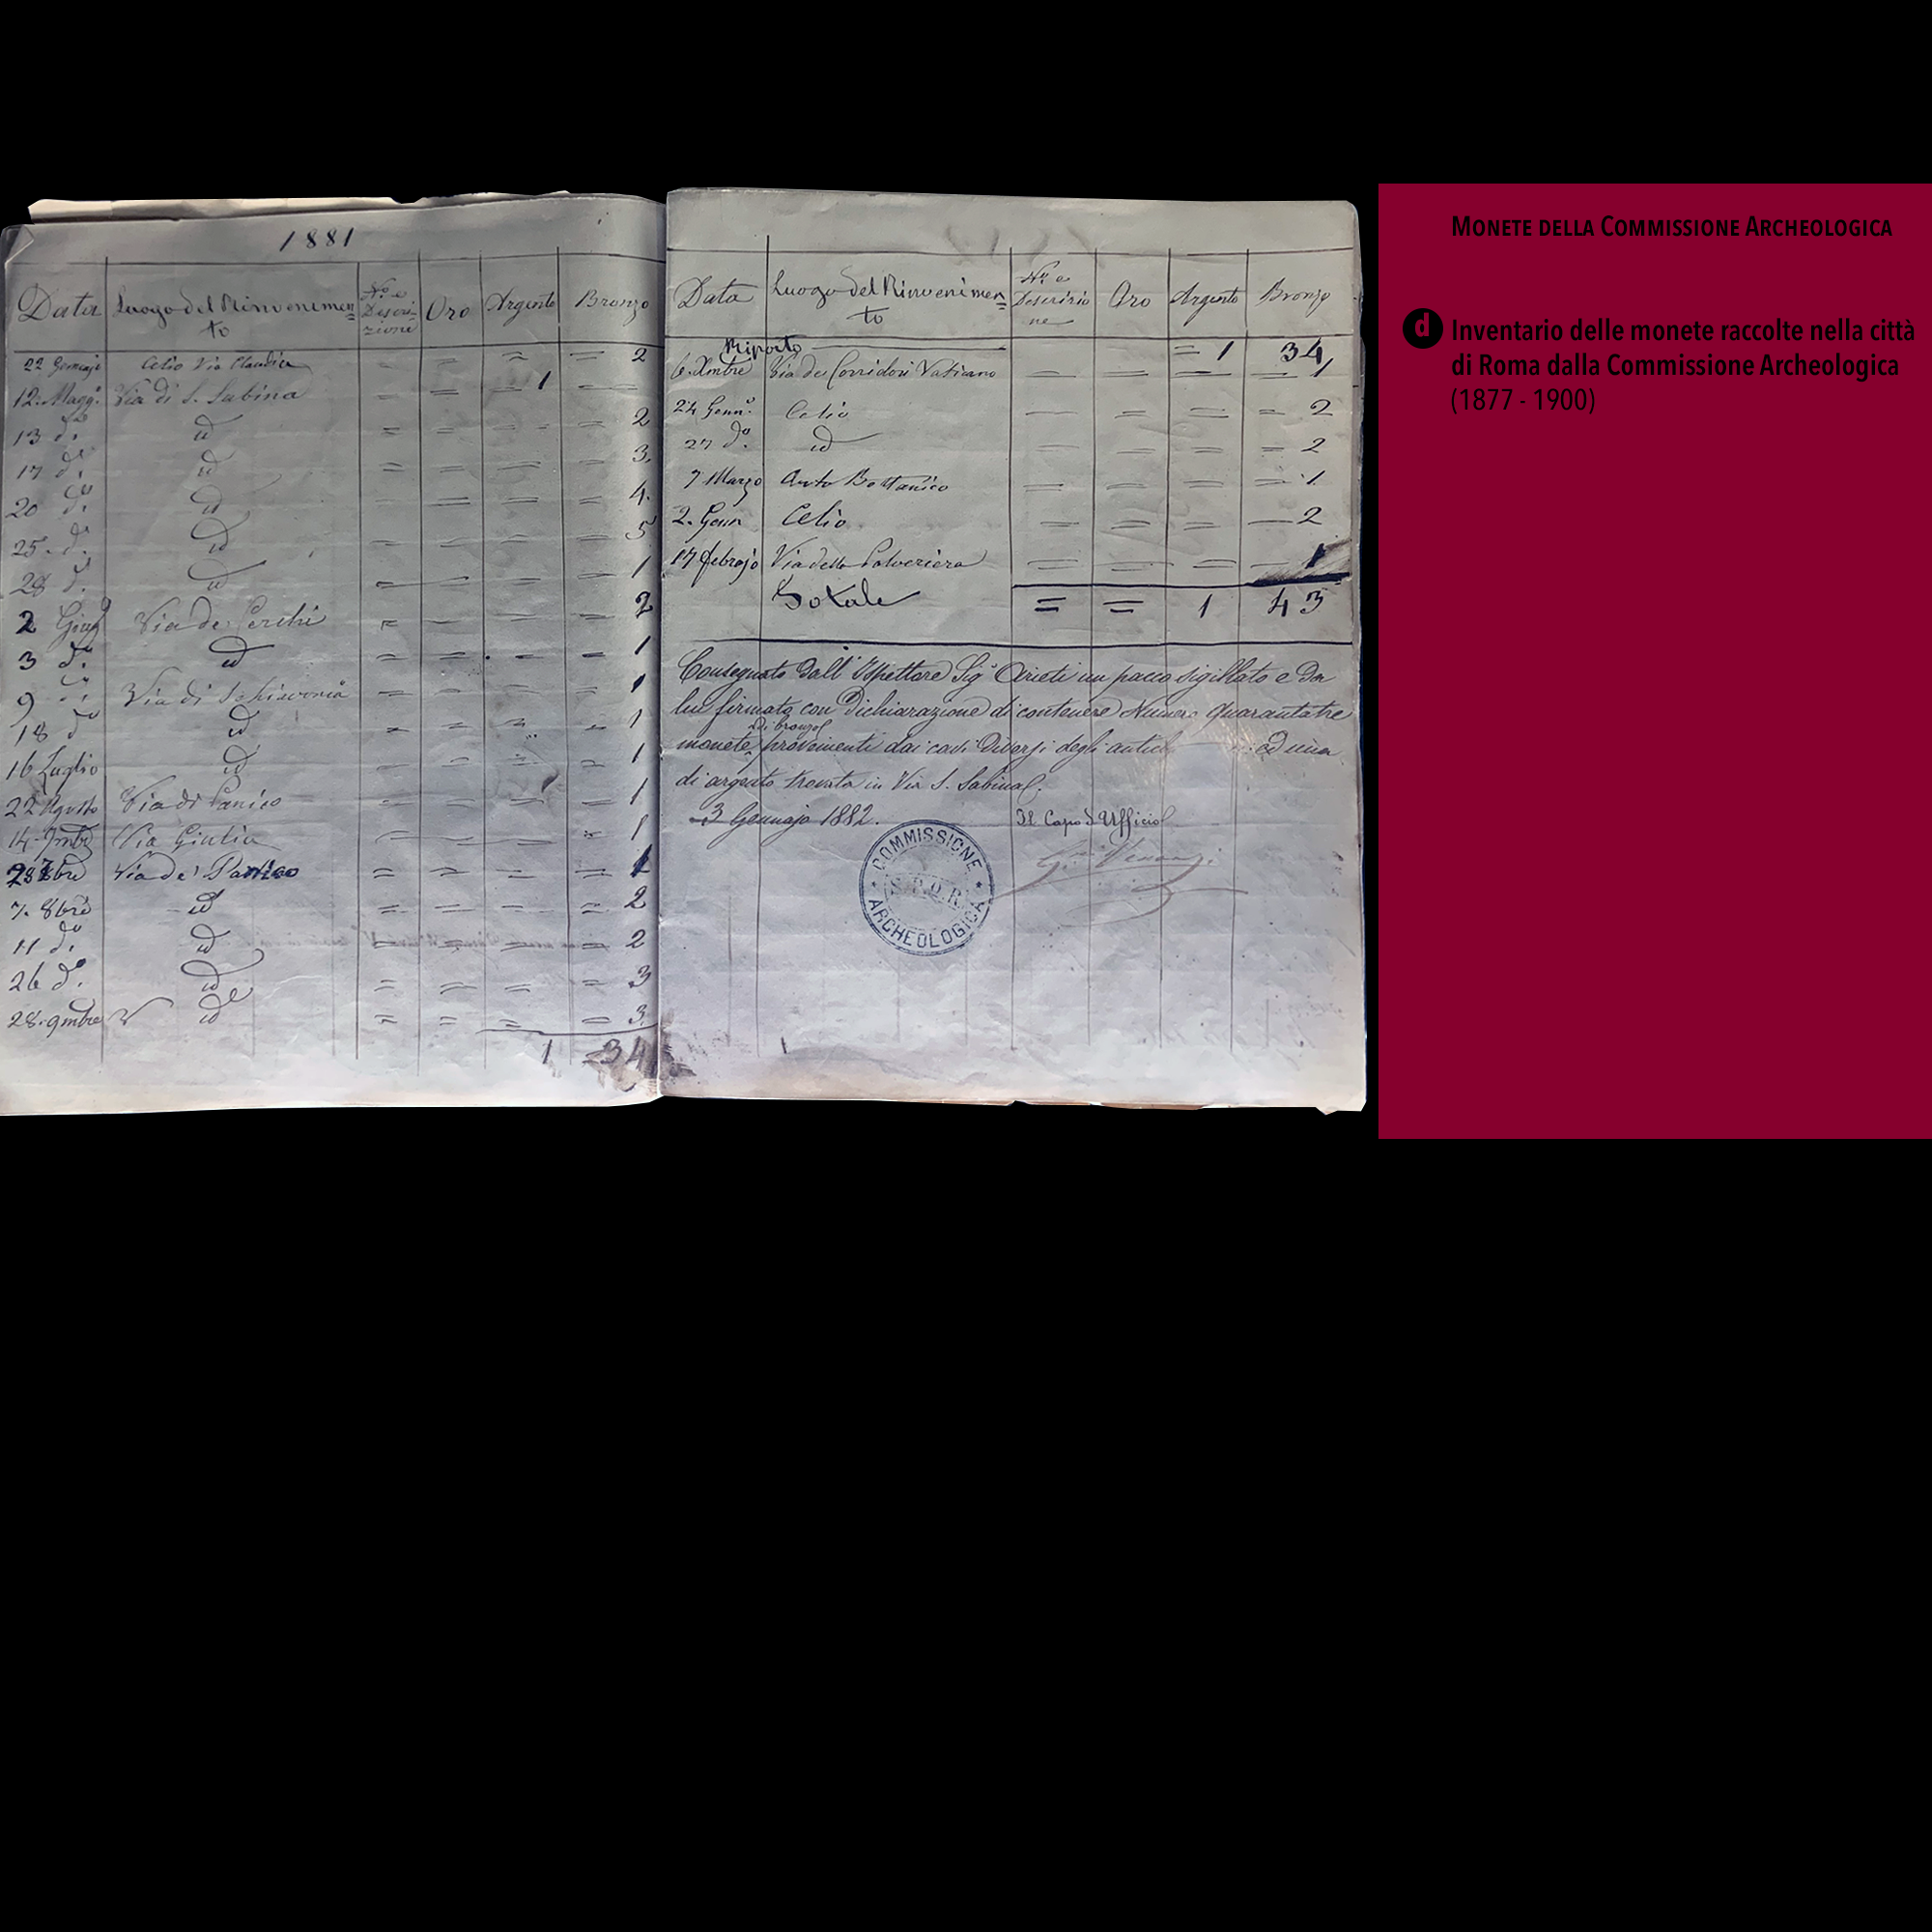 1881
Data Luogo del Rinvenimen= to No e Descri-zione Oro Argento Bronzo
22 Gennajo Celio Via Claudia = = = = 2
12. Magg.o Via di S. Sabina = = 1
13 do. id = = = = 2
17 do. id = = = = 3.
20 do. id = = = = 4.
25. do. id = = = = 5
28 d. id = = = = 1
2 Giug Via de' Cerchi = = = = 2
3 do. id = = = = 1
9 do. Via di Schiavonia = = = = 1
18 do id = = = = 1
16 Luglio id = = = = 1
22 Agosto Via di Panico = = = = 1
14. 7mbre Via Giulia = = = = 1
bre Via de' Panico = = = = 1
7. 8bre id = = = = 2
11 do. id = = = = 2
26 do. id = = = = 3
28. 9mbre id = = = = 3.
1 34
Data Luogo del Rinvenimen= to No. e Descrizio ne Oro Argento Bronzo
Riporto = 1 34
6. Xmbre Via de Corridori Vaticano = = = = 1
24 Genn.o Celio = = = = 2
27 do. id = = = = 2
7 Marzo Orto Bottanico = = = = 1
2. Genn Celio = = = = 2
17 febrajo Via della Polveriera = = = = 1
Totale = = 1 43
Consegnato dall' Ispettore Sig. Arieti un pacco sigillato e da
lui firmato con dichiarazione di contenere Numero quarantatre
di bronzo
monete provenienti dai cavi diversi degli ed una
di argento trovata in Via S. Sabina.
3 Gennajo 1882.
Il Capo d'Ufficio
G. Venanzi
COMMISSIONE
S.P.Q.R.
ARCHEOLOGICA
MONETE DELLA COMMISSIONE ARCHEOLOGICA
d Inventario delle monete raccolte nella città
di Roma dalla Commissione Archeologica
(1877 - 1900)